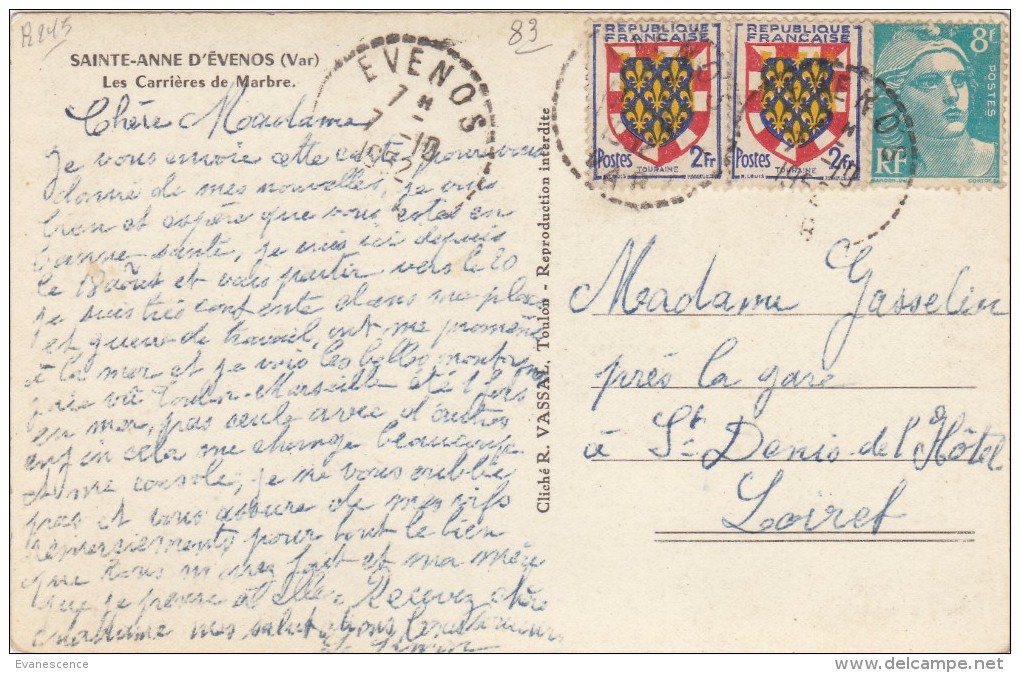 R245
83
SAINTE-ANNE D'ÉVENOS (Var)
Les Carrières de Marbre.
EVENOS
7 H
7 - 10
1952
RÉPUBLIQUE FRANÇAISE
Postes 2Fr
TOURAINE
RÉPUBLIQUE FRANÇAISE
Postes 2Fr
TOURAINE
8f
POSTES
RF
Chère Madame
Je vous envoie cette carte pour vous
donné de mes nouvelles, je vais
bien et espère que vous êtes en
bonne santé, je suis ici depuis
le 18 août et vais partir vers le 20
je suis très contente dans ma place
et guère de travail, ont me promène
à la mer et je vois les belles montagnes
j'ai vu Toulon-Marseille été 1 fois
en mer, pas seule avec d'autres
enfin cela me change beaucoup
et me console, je ne vous oublie
pas et vous assure de mes vifs
remerciements pour tout le bien
que vous m'avez fait et ma mère
que je pense à elle. Recevez chère
madame mes salutations
Cliché R. VASSAL, Toulon - Reproduction interdite
Madame Gasselin
près la gare
à St Denis de l'Hôtel
Loiret
Evanescence
www.delcampe.net